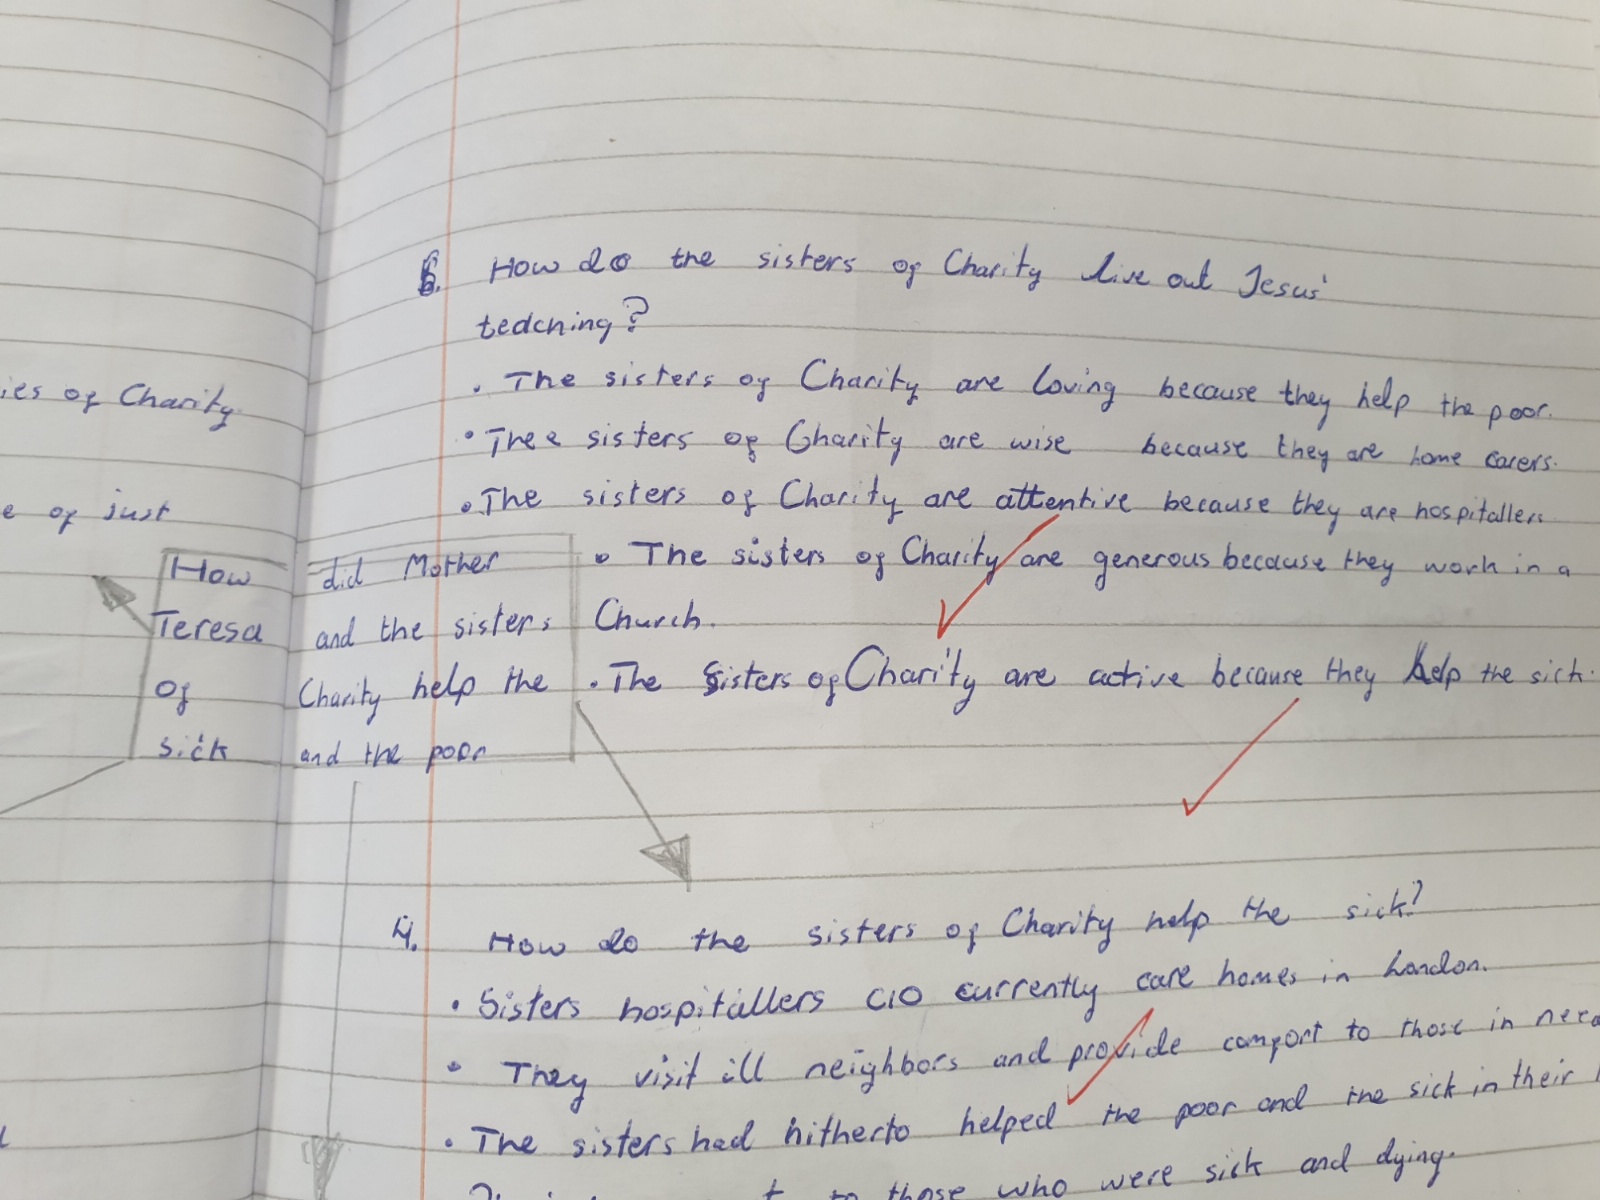 ies of Charity
e of just
How did Mother
Teresa and the sisters
of Charity help the
sick and the poor
6. How do the sisters of Charity live out Jesus'
teaching?
• The sisters of Charity are loving because they help the poor.
• Thee sisters of Charity are wise because they are home carers.
• The sisters of Charity are attentive because they are hospitallers
• The sisters of Charity are generous because they work in a
Church.
• The Sisters of Charity are active because they help the sick.
4. How do the sisters of Charity help the sick?
• Sisters hospitallers CIO currently care homes in London.
• They visit ill neighbors and provide comfort to those in need
• The sisters had hitherto helped the poor and the sick in their
to those who were sick and dying.